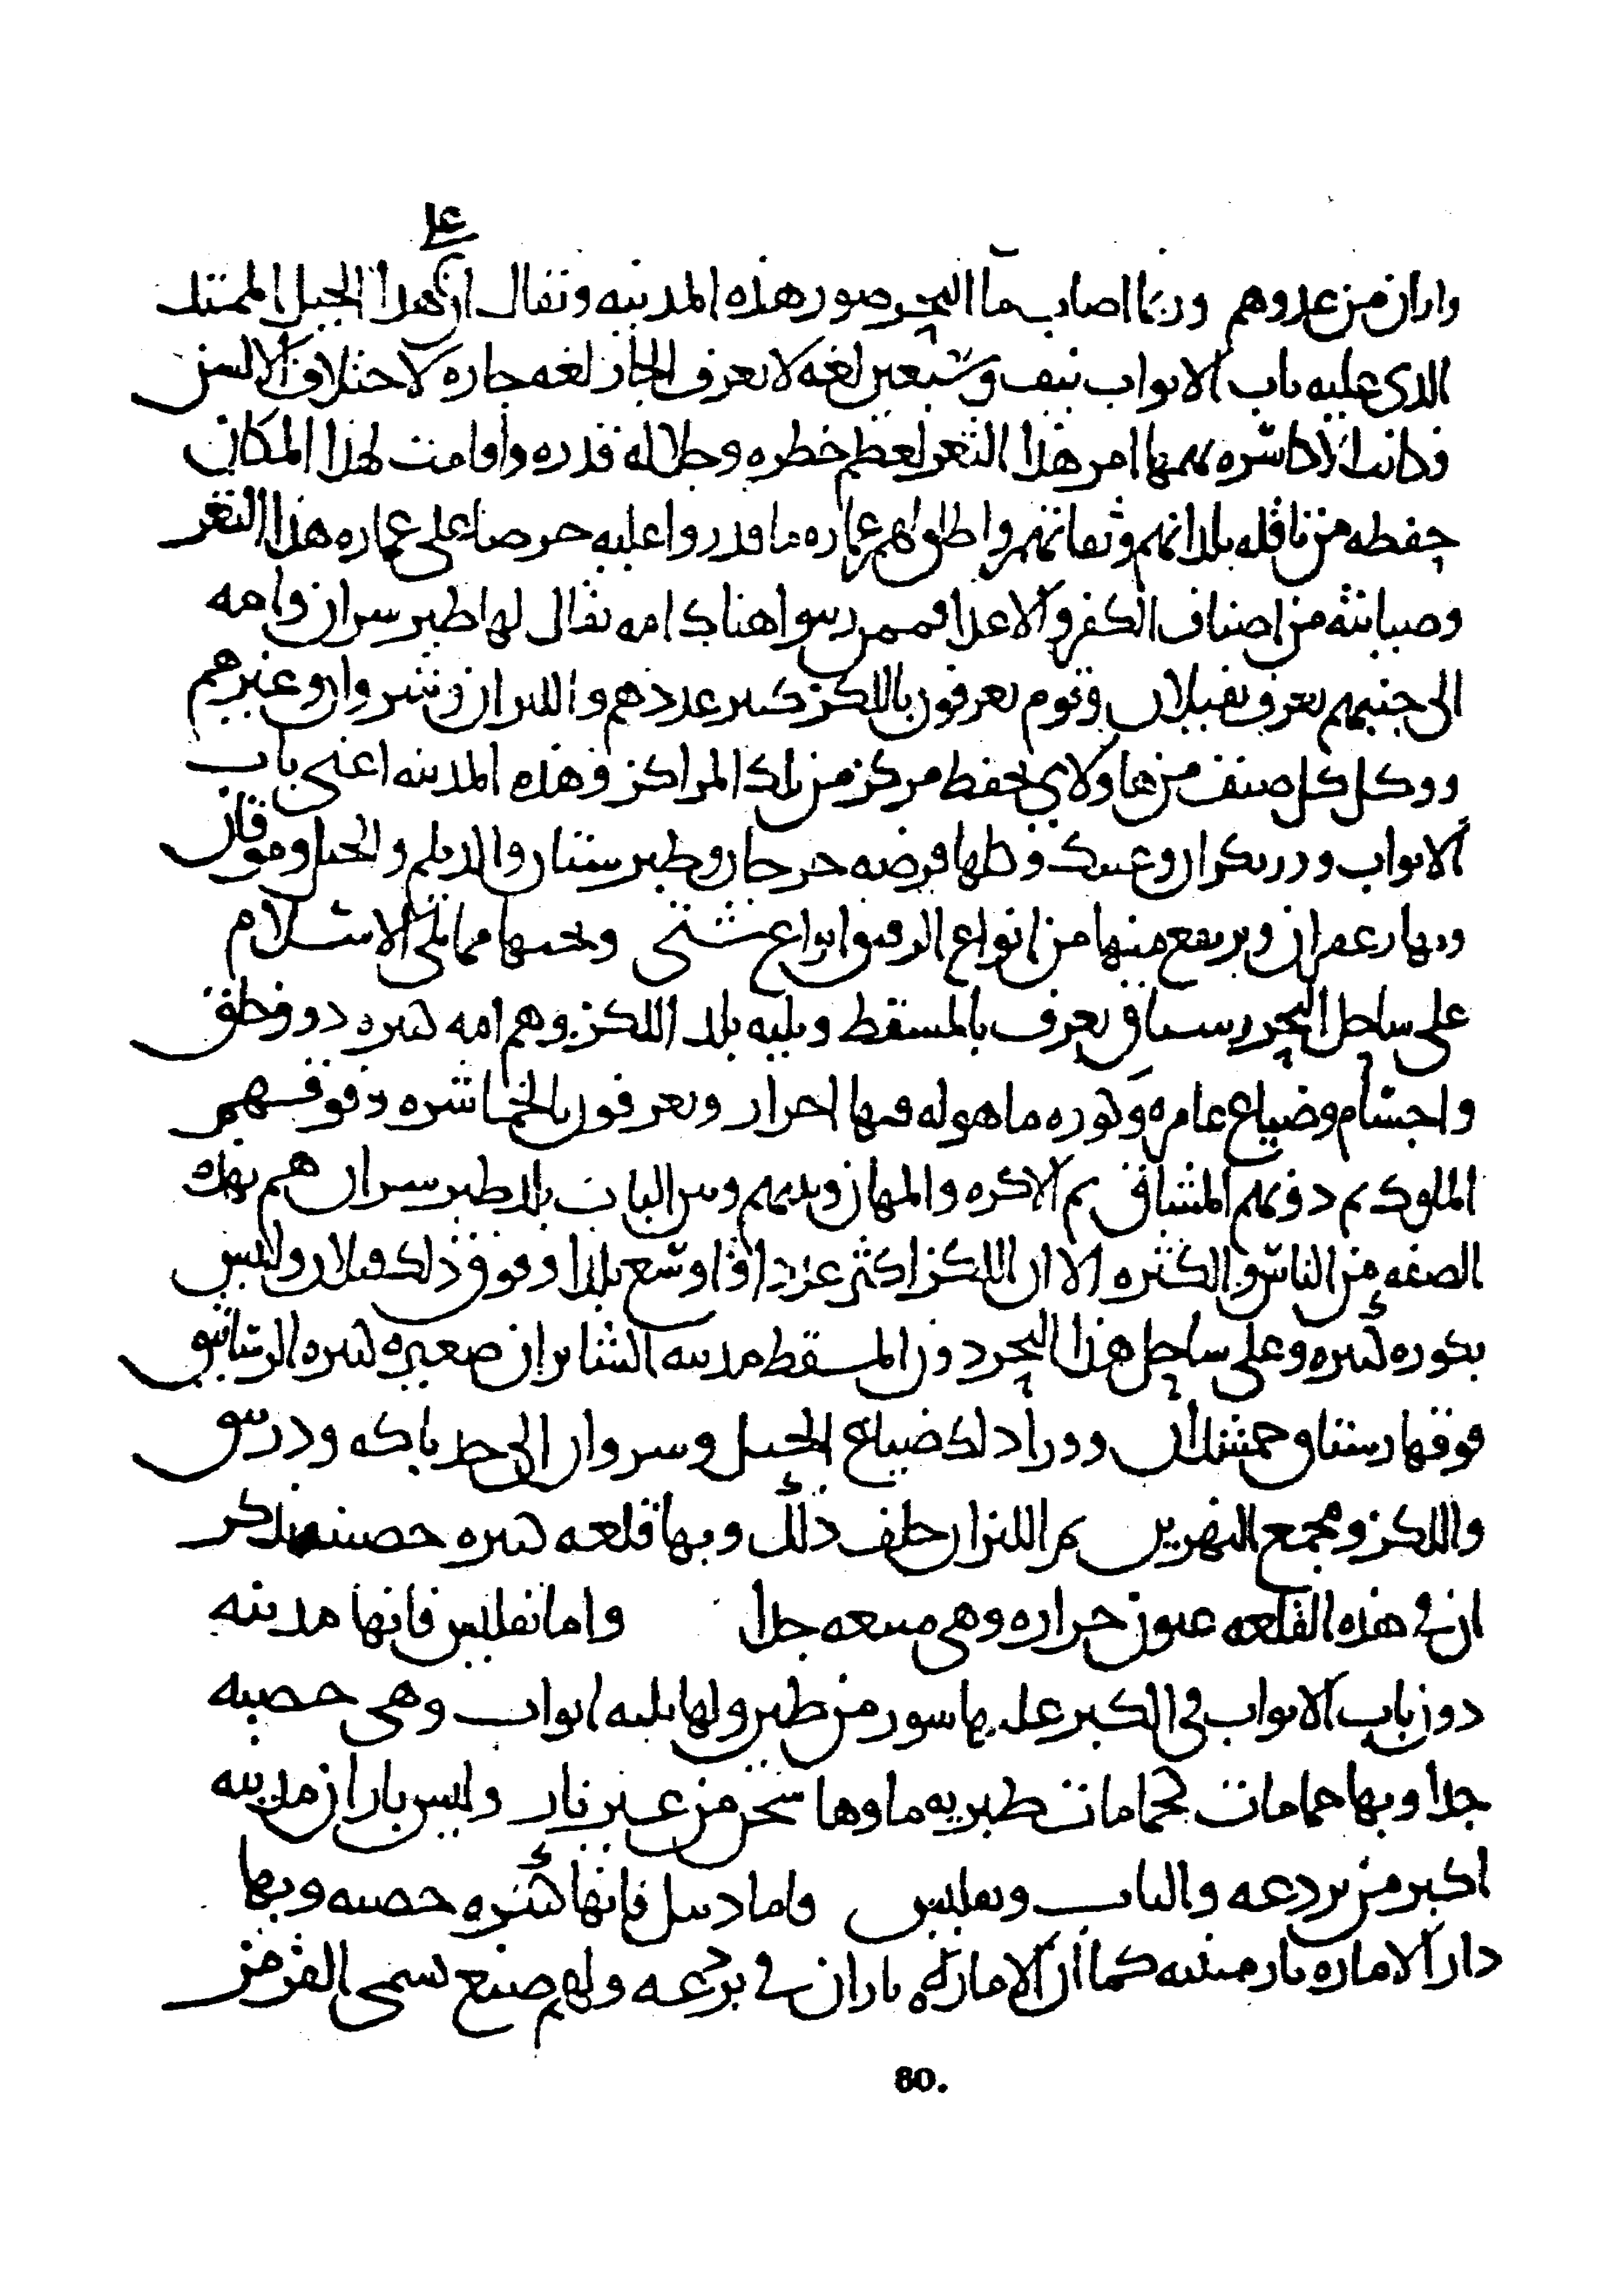 على
واران من عدوهم وربما اصاب ما البحر صور هذه المدينه ونقال ان هذا الجبل الممتد
الذى عليه باب الابواب نيف وسبعين لغه لا يعرف الجار لغه جاره لاختلاف الالسن
وكانت الاكاسره يهمها امر هذا الثغر لعظم خطره وجلاله قدره واقامت لهذا المكان
حفظه من ناقله بلدانهم وثقاتهم واطلق لهم عماره ما قدروا عليه حرصا على عماره هذا الثغر
وصيانته من اصناف الكفر والاعدا فممن رسوا هناك امه يقال لها طبرسران وامه
الى جنبهم تعرف بفيلان وقوم يعرفون باللكز كثير عددهم والليزان وشروان وغيرهم
ووكل كل صنف من هاولاى بحفظ مركز من تلك المراكز وهذه المدينه اعنى باب
الابواب ودربكران وعسك وكلها فرضه جرجان وطبرستان والديلم والجبل وموقان
وبها زعفران ويرتفع منها من انواع الرقيق انواع شتى وبجنبها مما يلى الاسلام
على ساحل البحر رستاق يعرف بالمسقط ويليه بلد اللكز وهم امه كثيره ذوو خلق
واجسام وضياع عامره وكوره ماهوله فيها احرار ويعرفون بالخماشره وفوقهم
الملوك ثم دونهم المشاق ثم الاكره والمهان وبينهم وبين الباب بلد طبرسران هم بهذه
الصفه من الناس والكثره الا ان اللكز اكثر عددا واوسع بلدا وفوق ذلك فيلان وليس
بكوره كبيره وعلى ساحل هذا البحر دون المسقط مدينه الشابران صغيره كثيره الرساتيق
فوقها رستاق حمشدان وورا ذلك ضياع الجبل وشروان الى حد باكه ودرنيق
واللكز ومجمع النهرين ثم الليزان خلف ذلك وبها قلعه كبيره حصينه يذكر
ان فى هذه القلعه عيون حراره وهى منيعه جدا واما تفليس فانها مدينه
دون باب الابواب فى الكبر عليها سور من طين ولها ثلثه ابواب وهى خصبه
جدا وبها حمامات كحمامات طبريه ماوها سخن من غير نار وليس باران مدينه
اكبر من بردعه والباب وتفليس واما دبيل فانها كبيره خصبه وبها
دار الاماره بارمينيه كما ان الاماره باران فى بردعه ولهم صنع تسمى القرمز
80.